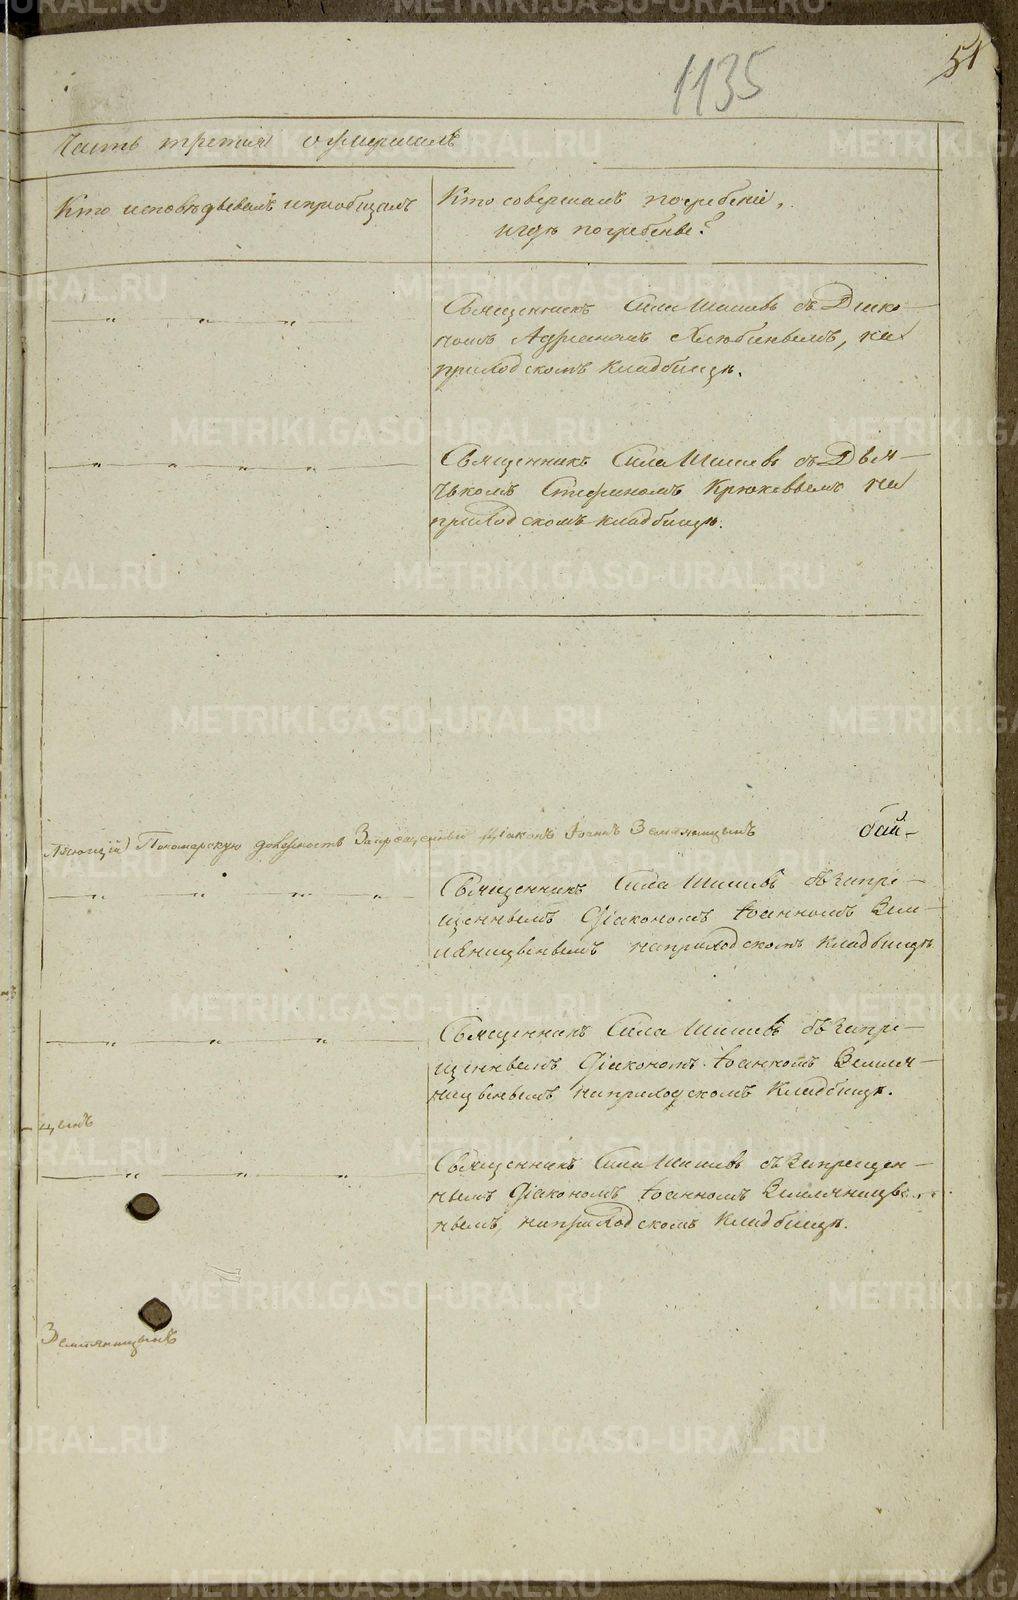 1135
51
Часть третия о умершихъ
Кто исповѣдывалъ и приобщалъ
Кто совершалъ погребенiе,
и гдѣ погребены?
Священникъ Сила Шишевъ съ Дiако-
номъ Адрианомъ на
приходскомъ кладбищѣ.
Священникъ Сила Шишевъ съ Дья-
чькомъ Стефаномъ Крюковымъ на
приходскомъ кладбищѣ.
Пономарскую должность Запрещенный Дiаконъ Iоаннъ Земляницынъ
Священникъ Сила Шишевъ съ запре-
щеннымъ Дiакономъ Iоанномъ Зем-
ляницынымъ на приходскомъ кладбищѣ
Священникъ Сила Шишевъ съ запре-
щеннымъ Дiакономъ Iоанномъ Земля-
ницынымъ на приходскомъ кладбищѣ.
цынъ
Священникъ Сила Шишевъ съ запрещен-
нымъ Дiакономъ Iоанномъ
на приходскомъ кладбищѣ.
Земляницынъ
METRIKI.GASO-URAL.RU